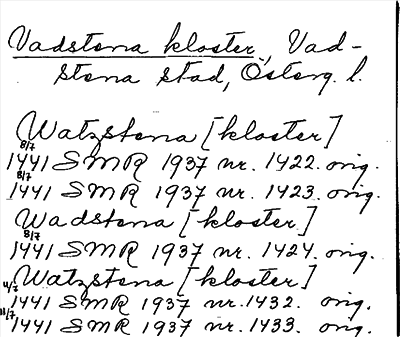 Vadstena kloster, Vad-
stena stad, Österg. l.
Watzstena [kloster]
8/7
1441 SMR 1937 nr. 1422. orig.
8/7
1441 SMR 1937 nr. 1423. orig.
Wadstena [kloster]
8/7
1441 SMR 1937 nr. 1424. orig.
Watzstena [kloster]
11/7
1441 SMR 1937 nr. 1432. orig.
11/7
1441 SMR 1937 nr. 1433. orig.